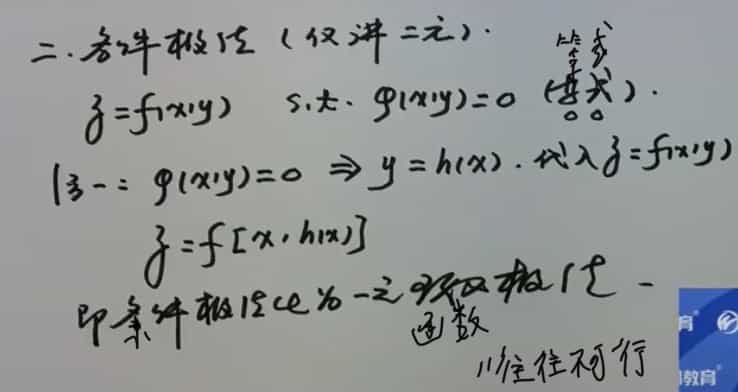 二.条件极值(仅讲二元).
z=f(x,y) s.t. φ(x,y)=0 (等式).
等式
法一: φ(x,y)=0 ⇒ y=h(x).代入z=f(x,y)
z=f[x,h(x)]
即条件极值化为一元函数极值-
函数
"往往不可行
育
教育